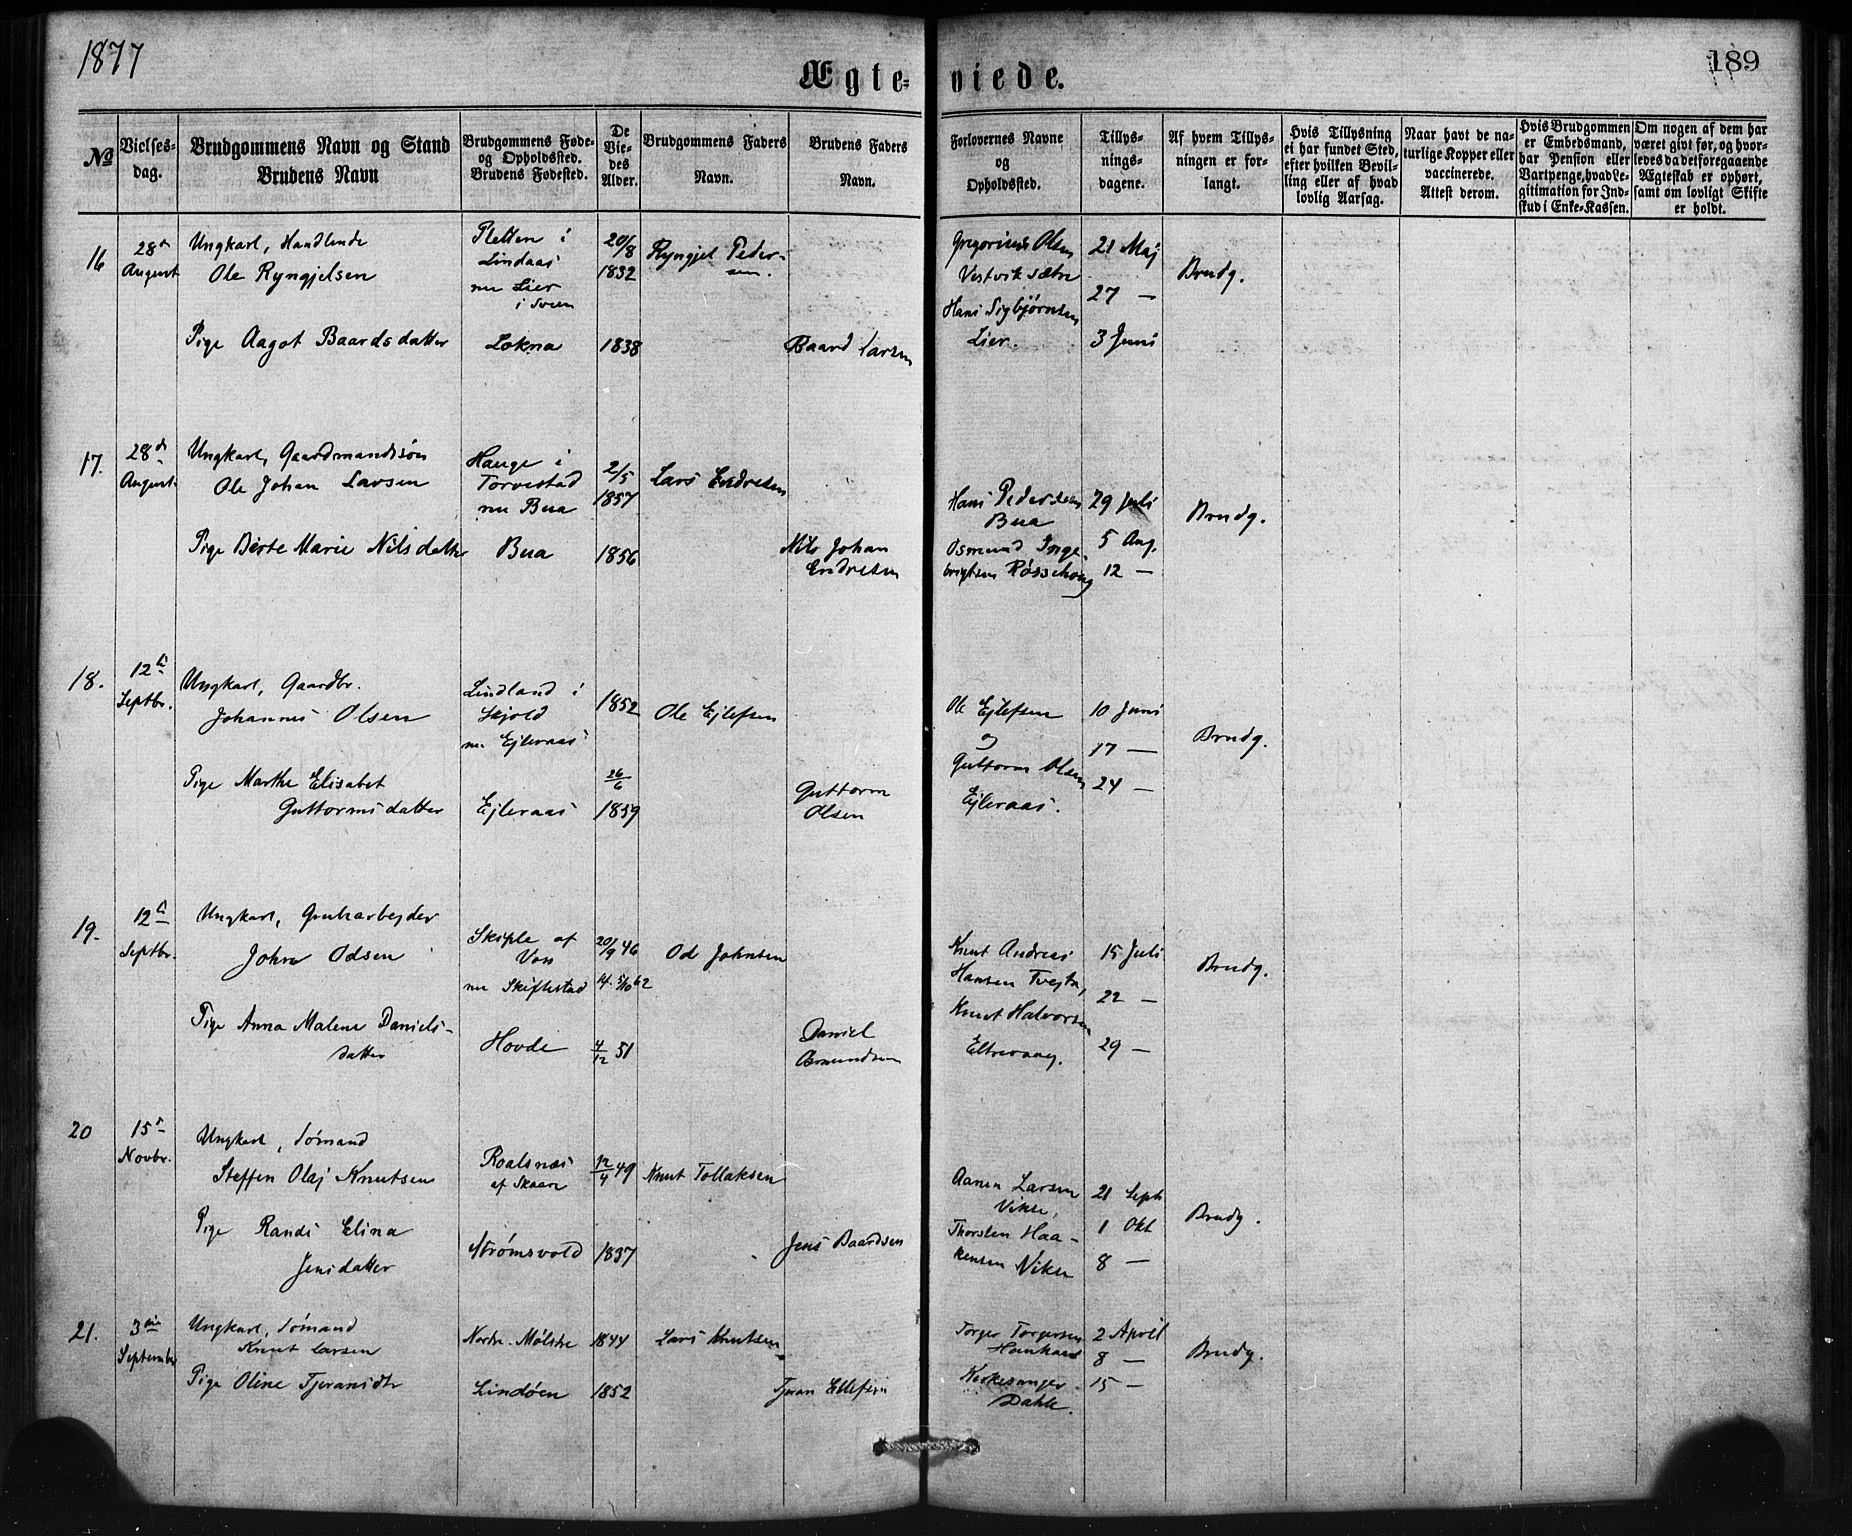 1877
189
Ægteviede.
No
Vielsesdag.
Brudgommens Navn og Stand
Brudens Navn
Brudgommens Føde- og Opholdssted.
Brudens Fødested.
De Viedes Alder.
Brudgommens Faders Navn.
Brudens Faders Navn.
Forlovernes Navne og Opholdssted.
Tillysningsdagene.
Af hvem Tillysningen er forlangt.
Hvis Tillysning ei har fundet Sted, efter hvilken Bevilling eller af hvad lovlig Aarsag.
Naar havt de naturlige Kopper eller vaccinerede. Attest derom.
Hvis Brudgommen er Embedsmand, har Pension eller Vartpenge, hvad Legitimation for Indskud i Enke-Kassen.
Om nogen af dem har været givt før, og hvorledes da det foregaaende Ægteskab er ophørt, samt om lovligt Skifte er holdt.
16
28de August
Ungkarl, Handlende
Ole Ryngjelsen
i Lindaas
nu Lier
i Sveen
20/8 1832
Ryngjel Pedersen.
Gregorius Olsen
Vestvik sætre
Hans Sigbjørnsen
Lier.
21 Maj
27 —
3 Juni
Brudg.
Pige Aagot Baardsdatter
Lokna
1838
Baard Larsen
17.
28de August
Ungkarl, Gaardmandssøn
Ole Johan Larsen
Hauge i
Torvestad
nu Bua
2/5 1857
Lars Endresen
Hans Pedersen
Bua
Osmund Ingebrigtsen Røssehoug
29 Juli
5 Aug.
12 —
Brudg.
Pige Berte Marie Nilsdatter
Bua
1856
Nils Johan
Endresen
18.
12te Septbr.
Ungkarl, Gaardbr.
Johannes Olsen
Lindland i
Skjold
nu Ejleraas
1852
Ole Ejlefsen
Ole Ejlefsen
og
Guttorm Olsen
Ejleraas.
10 Juni
17 —
24 —
Brudg.
Pige Marthe Elisabet
Guttormsdatter
Ejleraas
26/6 1859
Guttorm
Olsen
19.
12te Septbr.
Ungkarl, Grubearbejder
John Odsen
Skiple af
Voss
nu Skiftestad
20/9 46
Od Johnsen
Knut Andreas
Hansen Tvejta,
Knut Halvorsen
Eltrevaag.
15 Juli
22 —
29 —
Brudg.
Pige Anna Malene Danielsdatter
Hovde
4/12 51
Daniel
Osmundsen
20
15de Novbr.
Ungkarl, Sømand
Steffen Olaj Knutsen
Roalsnæs
af Skaare
12/4 49
Knut Tollaksen
Aanen Larsen
Vikse,
Thorsten Haakensen Vikse
21 Septr
1 Okt
8 —
Brudg.
Pige Randi Elina
Jensdatter
Strømsvold
1837
Jens Baardsen
21.
3die September
Ungkarl, Sømand
Knut Larsen
Nordre Mølstre
1844
Lars Knutsen
Torger Torgersen
2 April
8 —
15 —
Brudg.
Dahle.
Pige Oline Tjeransdtr
Lindøen
1852
Tjeran Ellefsen